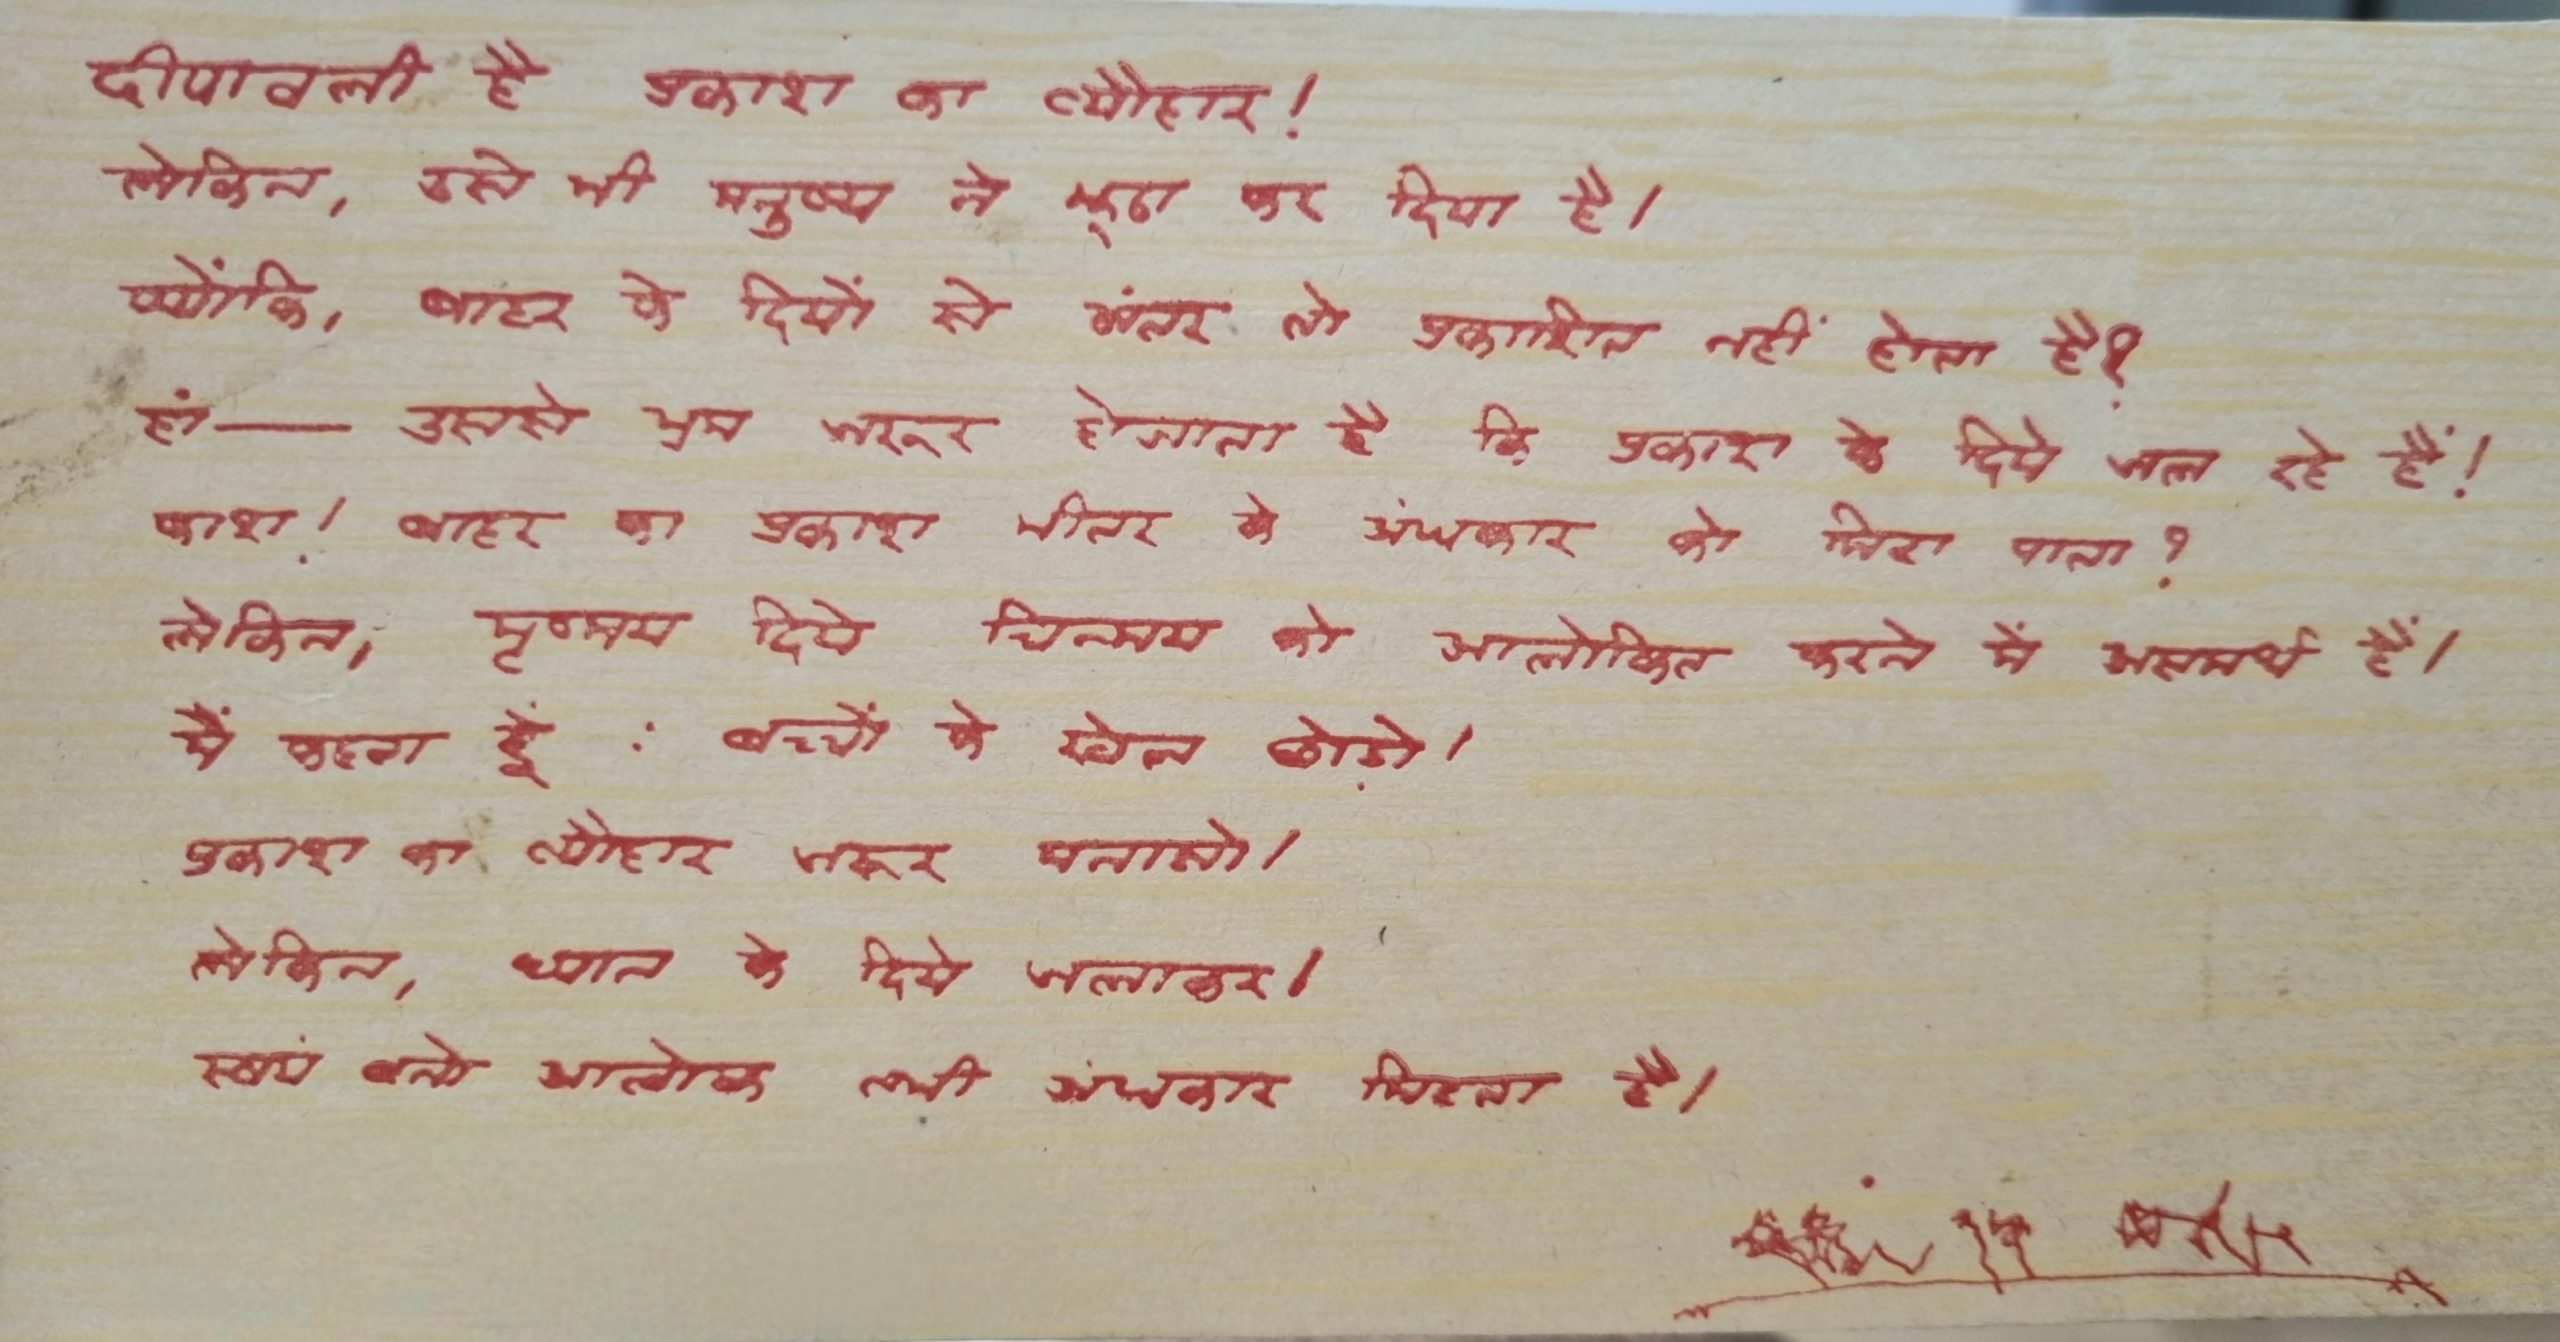 दीपावली है प्रकाश का त्यौहार!
लेकिन, उसे भी मनुष्य ने झूठा कर दिया है।
क्योंकि, बाहर के दियों से अंतर तो प्रकाशित नहीं होता है?
हां— उससे भ्रम जरूर होजाता है कि प्रकाश के दिये जल रहे हैं!
काश! बाहर का प्रकाश भीतर के अंधकार को मिटा पाता?
लेकिन, मृण्मय दिये चिन्मय को आलोकित करने में असमर्थ हैं।
मैं कहता हूं : बच्चों के खेल छोड़ो।
प्रकाश का त्यौहार जरूर मनाओ।
लेकिन, ध्यान के दिये जलाकर।
स्वयं बनो आलोक तभी अंधकार मिटता है।